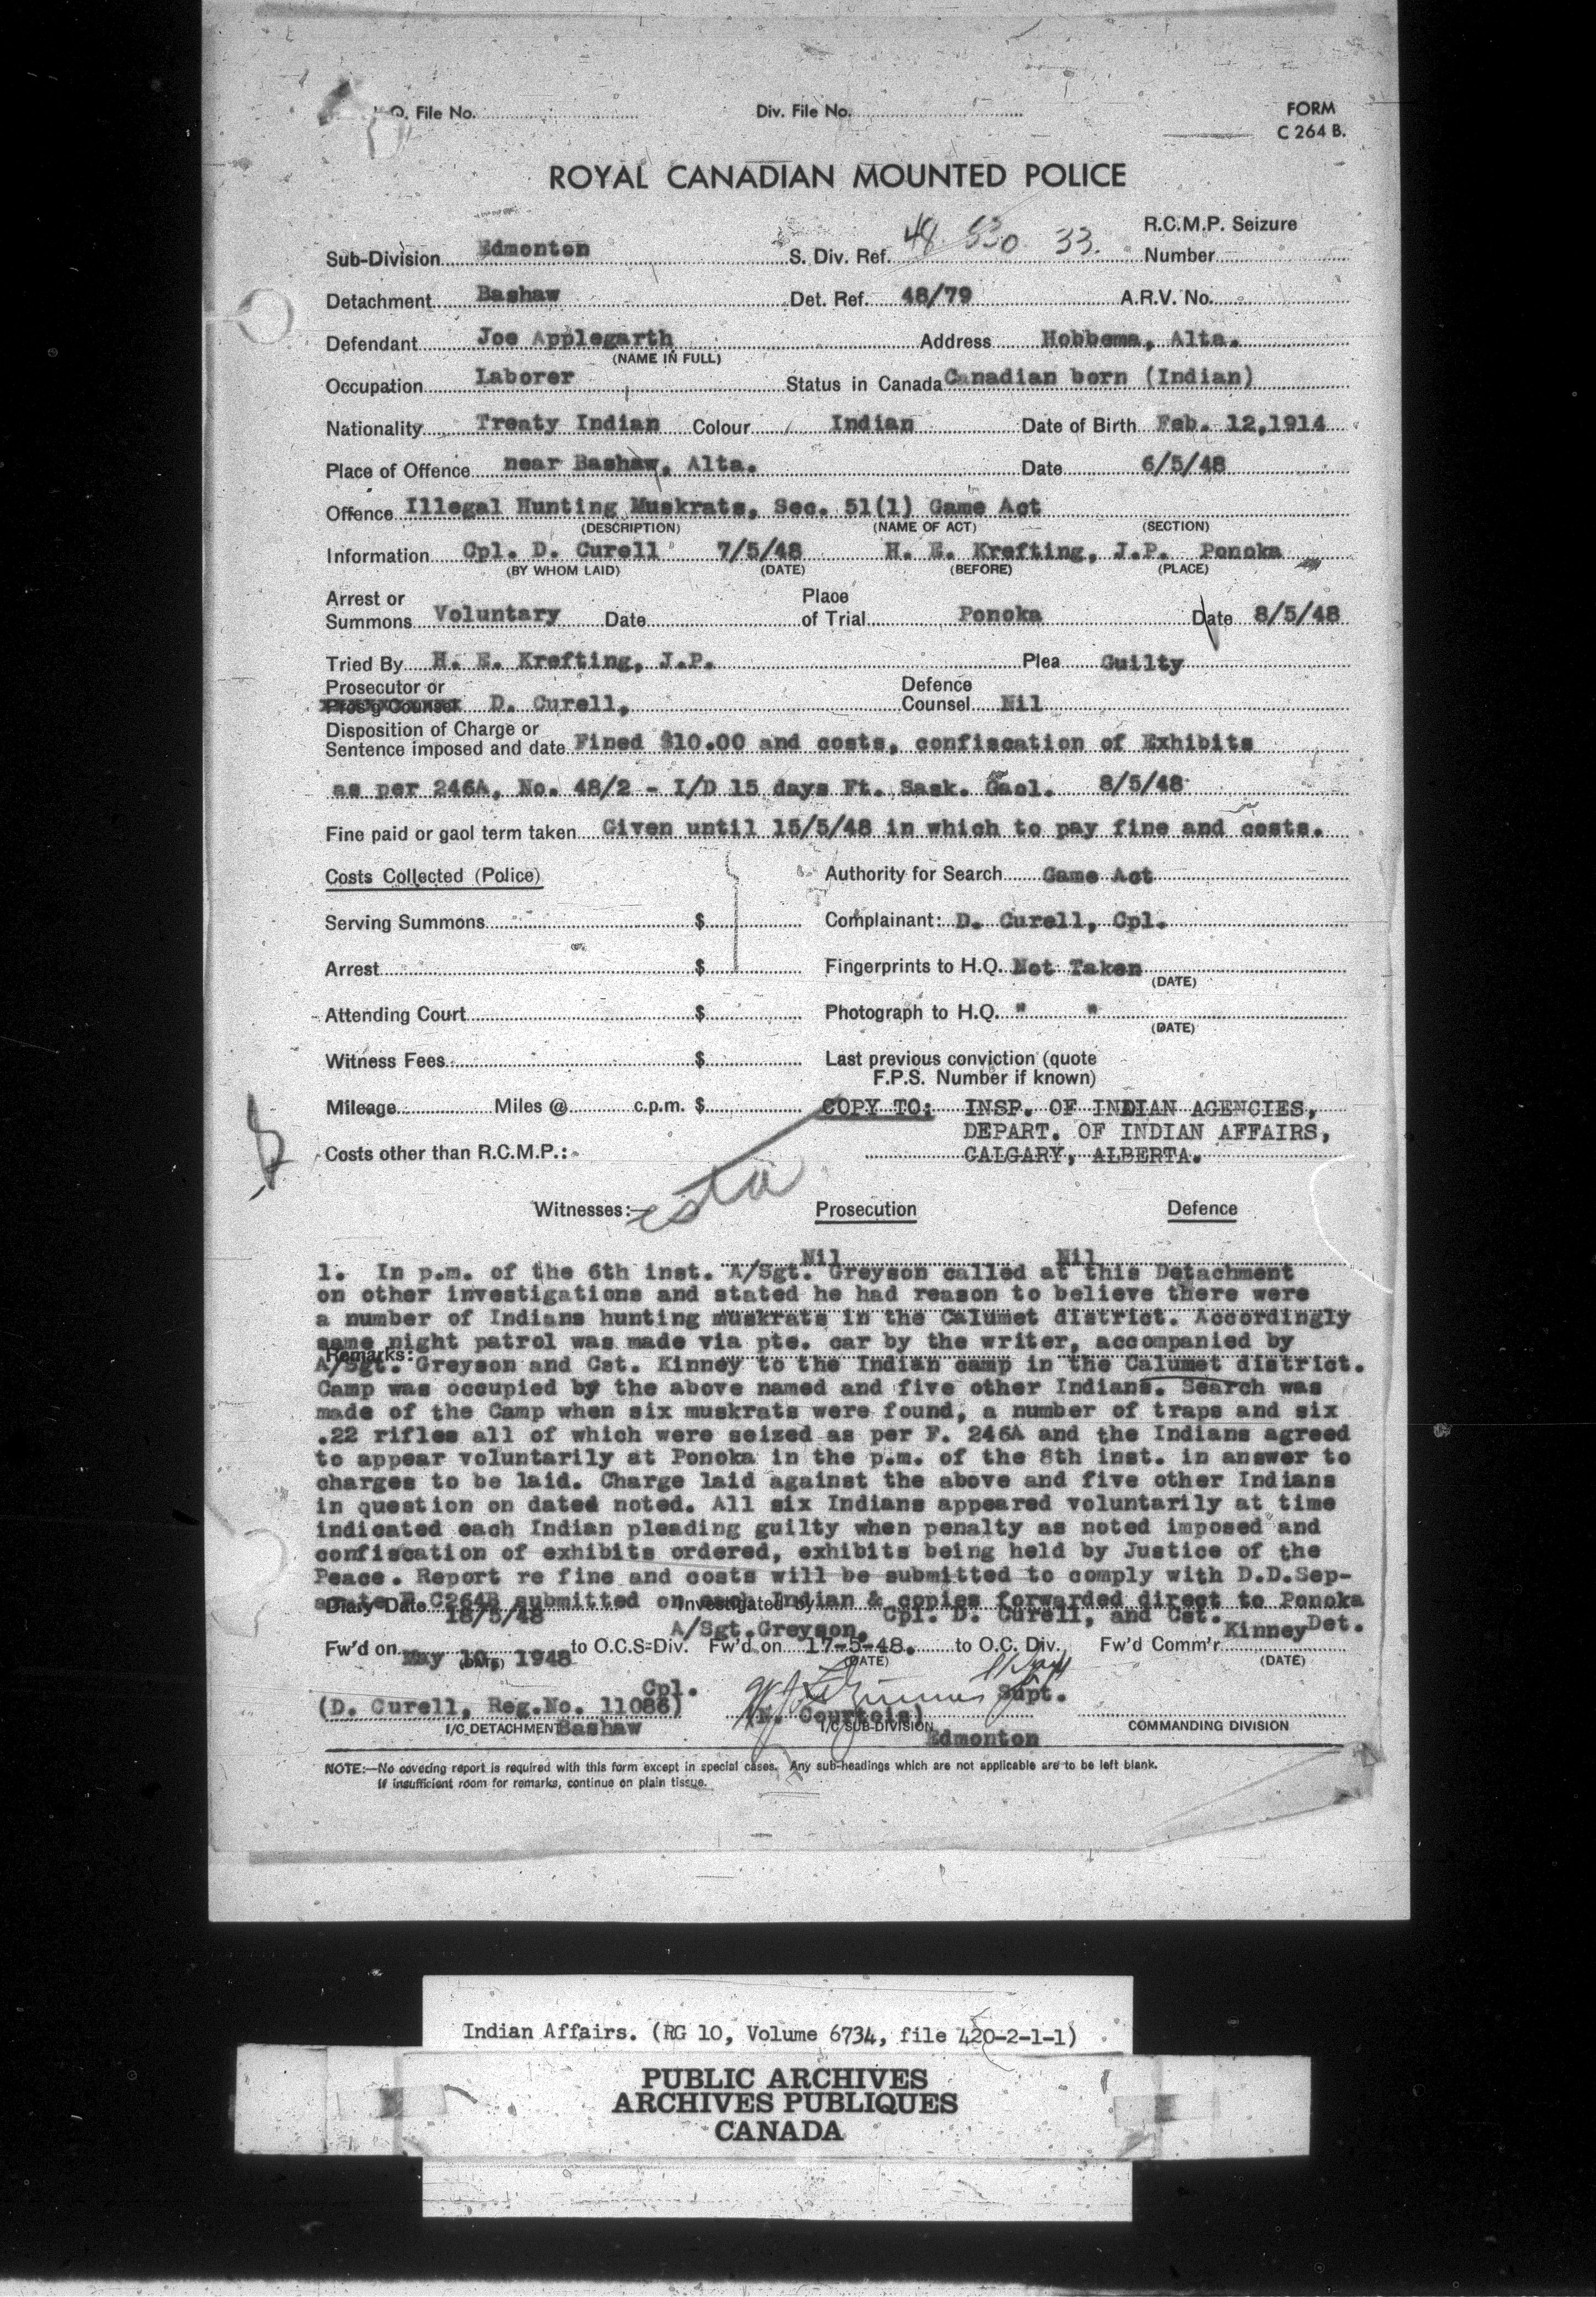 Q. File No. Div. File No. FORM
C 264 B.
ROYAL CANADIAN MOUNTED POLICE
R.C.M.P. Seizure
Sub-Division Edmonton S. Div. Ref. 48 530 33. Number
Detachment Bashaw Det. Ref. 48/79 A.R.V. No.
Defendant Joe Applegarth Address Hobbema, Alta.
(NAME IN FULL)
Occupation Laborer Status in Canada Canadian born (Indian)
Nationality Treaty Indian Colour Indian Date of Birth Feb. 12,1914
Place of Offence near Bashaw, Alta. Date 6/5/48
Offence Illegal Hunting Muskrats, Sec. 51(1) Game Act
(DESCRIPTION) (NAME OF ACT) (SECTION)
Information Cpl. D. Curell 7/5/48 H. E. Krefting, J.P. Ponoka
(BY WHOM LAID) (DATE) (BEFORE) (PLACE)
Arrest or Place
Summons Voluntary Date of Trial Ponoka Date 8/5/48
Tried By H. E. Krefting, J.P. Plea Guilty
Prosecutor or Defence
Pros'g Counsel D. Curell, Counsel Nil
Disposition of Charge or
Sentence imposed and date Fined $10.00 and costs, confiscation of Exhibits
as per 246A, No. 48/2 - I/D 15 days Ft. Sask. Gaol. 8/5/48
Fine paid or gaol term taken Given until 15/5/48 in which to pay fine and costs.
Costs Collected (Police) Authority for Search Game Act
Serving Summons $ Complainant: D. Curell, Cpl.
Arrest $ Fingerprints to H.Q. Not Taken
(DATE)
Attending Court $ Photograph to H.Q. " "
(DATE)
Witness Fees $ Last previous conviction (quote
F.P.S. Number if known)
Mileage Miles @ c.p.m. $ COPY TO: INSP. OF INDIAN AGENCIES,
DEPART. OF INDIAN AFFAIRS,
Costs other than R.C.M.P.: CALGARY, ALBERTA.
Witnesses:— Prosecution Defence
Nil Nil
1. In p.m. of the 6th inst. A/Sgt. Greyson called at this Detachment
on other investigations and stated he had reason to believe there were
a number of Indians hunting muskrats in the Calumet district. Accordingly
same night patrol was made via pte. car by the writer, accompanied by
Remarks:
A/Sgt. Greyson and Cst. Kinney to the Indian camp in the Calumet district.
Camp was occupied by the above named and five other Indians. Search was
made of the Camp when six muskrats were found, a number of traps and six
.22 rifles all of which were seized as per F. 246A and the Indians agreed
to appear voluntarily at Ponoka in the p.m. of the 8th inst. in answer to
charges to be laid. Charge laid against the above and five other Indians
in question on dated noted. All six Indians appeared voluntarily at time
indicated each Indian pleading guilty when penalty as noted imposed and
confiscation of exhibits ordered, exhibits being held by Justice of the
Peace. Report re fine and costs will be submitted to comply with D.D.Sep-
arate F C264B submitted on each Indian & copies forwarded direct to Ponoka
Diary Date 18/5/48 Investigated by Cpl. D. Curell, and Cst. Kinney Det.
A/Sgt.Greyson.
Fw'd on May 10, 1948 to O.C.S-Div. Fw'd on 17-5-48. to O.C. Div. Fw'd Comm'r
(DATE) (DATE) (DATE)
Cpl. Supt.
(D. Curell, Reg.No. 11086) Courtois)
I/C DETACHMENT Bashaw I/C SUB-DIVISION Edmonton COMMANDING DIVISION
NOTE:—No covering report is required with this form except in special cases. Any sub-headings which are not applicable are to be left blank.
If insufficient room for remarks, continue on plain tissue.
Indian Affairs. (RG 10, Volume 6734, file 420-2-1-1)
PUBLIC ARCHIVES
ARCHIVES PUBLIQUES
CANADA